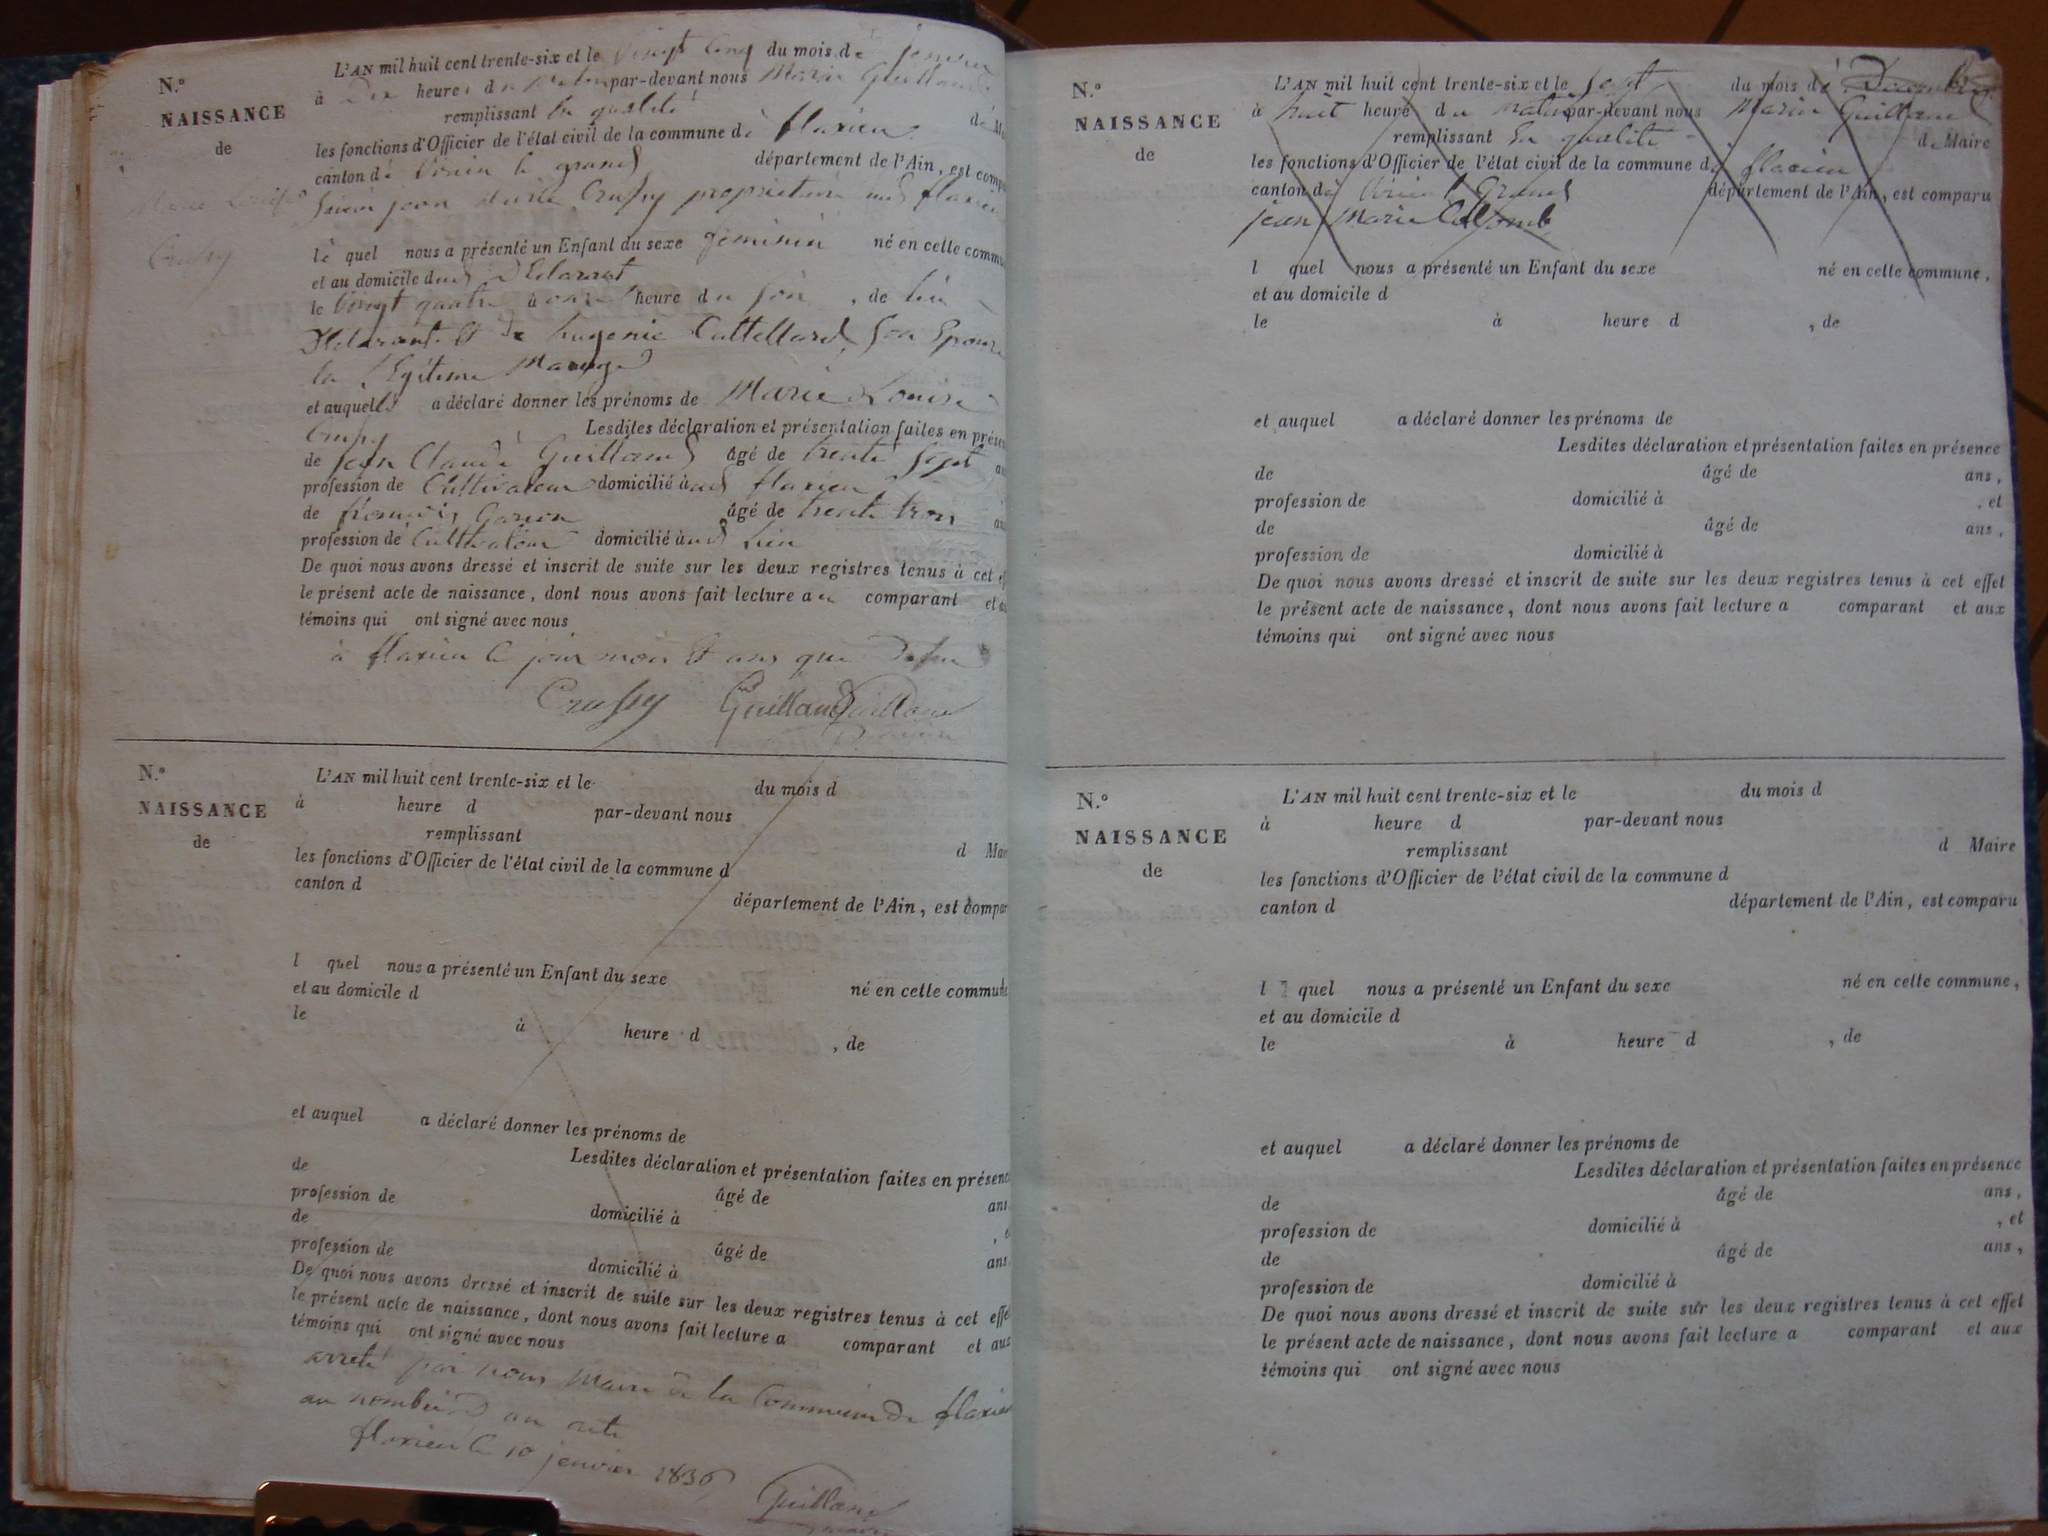 N.º
NAISSANCE
de
Marie Louise
Crussy
L'AN mil huit cent trente-six et le vingt cinq du mois de
à Dix heures du matin par-devant nous Marin Guilland
remplissant la qualité de
les fonctions d'Officier de l'état civil de la commune de flaxieu
canton de Virieu le grand département de l'Ain, est
jean Marie Crussy proprietaire flaxieu
le quel nous a présenté un Enfant du sexe féminin né en cette
et au domicile du
le Vingt quatre à onze heure du soir, de
Déclarant et de Eugenie Cattelland Son Epouse
la légitime Mariage
et auquel a déclaré donner les prénoms de Marie Louise
Crussy Lesdites déclaration et présentation faites en
de jean Claude Guilland âgé de trente Sept
profession de Cultivateur domicilié à flaxieu
de françois âgé de trente trois
profession de Cultivateur domicilié à
De quoi nous avons dressé et inscrit de suite sur les deux registres tenus à cet
le présent acte de naissance, dont nous avons fait lecture au comparant et
témoins qui ont signé avec nous
à flaxieu le jour mois et ans que
Crussy Guilland Guilland
N.º
NAISSANCE
de
L'AN mil huit cent trente-six et le du mois d
à heure d par-devant nous
remplissant d
les fonctions d'Officier de l'état civil de la commune d
canton d département de l'Ain, est
l quel nous a présenté un Enfant du sexe né en cette
et au domicile d
le à heure d , de
et auquel a déclaré donner les prénoms de
Lesdites déclaration et présentation faites en
de âgé de ans
profession de domicilié à
de âgé de ans
profession de domicilié à
De quoi nous avons dressé et inscrit de suite sur les deux registres tenus à cet
le présent acte de naissance, dont nous avons fait lecture a comparant et aux
témoins qui ont signé avec nous
arreté par nous Maire de la Commune de flaxieu
au nombre d un acte
flaxieu le 10 janvier 1836
Guilland
N.º
NAISSANCE
de
L'AN mil huit cent trente-six et le sept du mois de Decembre
à huit heure du matin par-devant nous Marin Guilland
remplissant la qualité de Maire
les fonctions d'Officier de l'état civil de la commune de flaxieu
canton de Virieu le Grand département de l'Ain, est comparu
jean Marie
l quel nous a présenté un Enfant du sexe né en cette commune,
et au domicile d
le à heure d , de
et auquel a déclaré donner les prénoms de
Lesdites déclaration et présentation faites en présence
de âgé de ans,
profession de domicilié à , et
de âgé de ans,
profession de domicilié à
De quoi nous avons dressé et inscrit de suite sur les deux registres tenus à cet effet
le présent acte de naissance, dont nous avons fait lecture a comparant et aux
témoins qui ont signé avec nous
N.º
NAISSANCE
de
L'AN mil huit cent trente-six et le du mois d
à heure d par-devant nous
remplissant d Maire
les fonctions d'Officier de l'état civil de la commune d
canton d département de l'Ain, est comparu
l quel nous a présenté un Enfant du sexe né en cette commune,
et au domicile d
le à heure d , de
et auquel a déclaré donner les prénoms de
Lesdites déclaration et présentation faites en présence
de âgé de ans,
profession de domicilié à , et
de âgé de ans,
profession de domicilié à
De quoi nous avons dressé et inscrit de suite sur les deux registres tenus à cet effet
le présent acte de naissance, dont nous avons fait lecture a comparant et aux
témoins qui ont signé avec nous